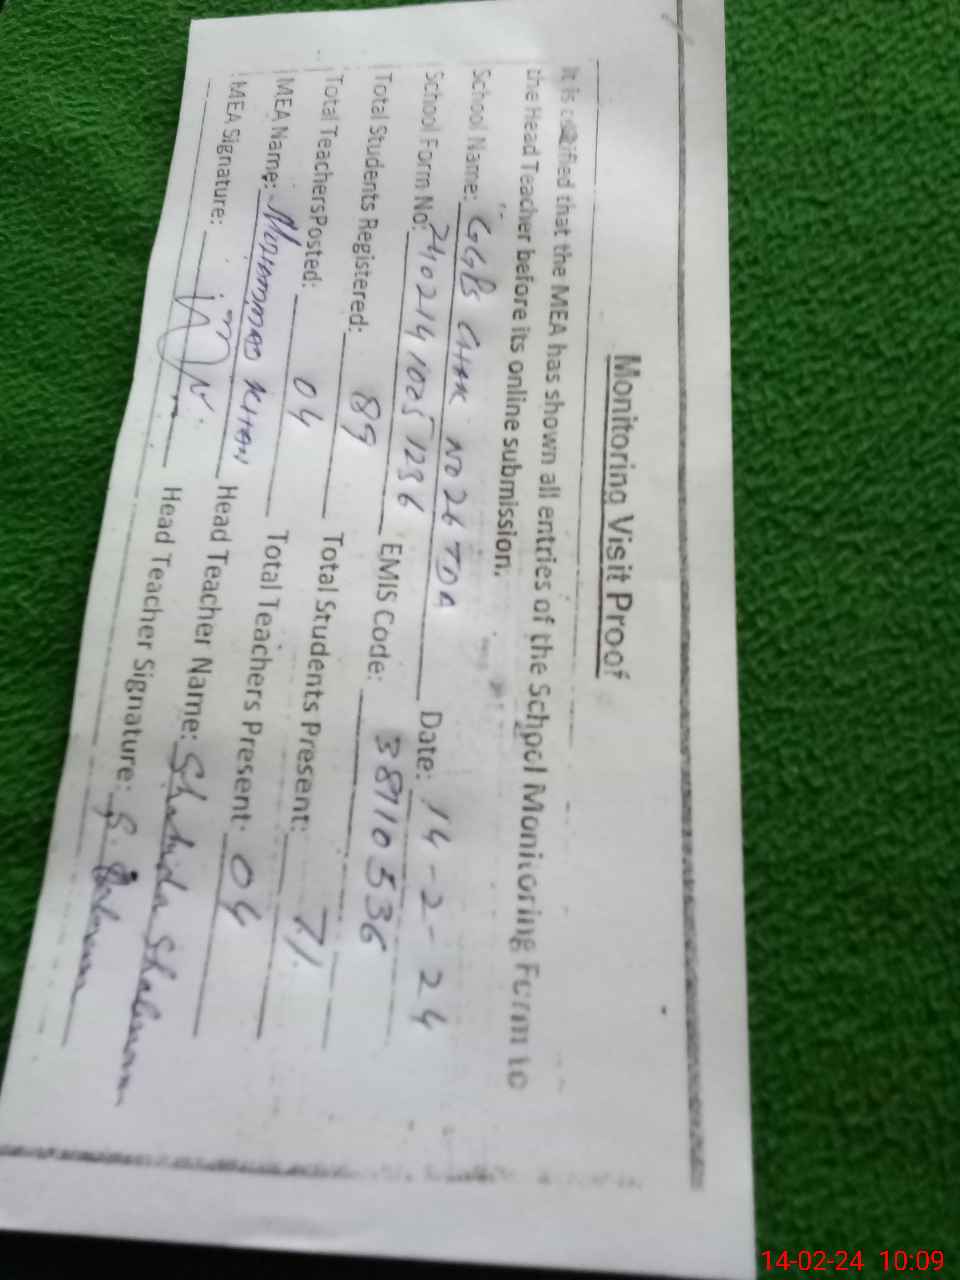 Monitoring Visit Proof
It is certified that the MEA has shown all entries of the School Monitoring Form to
the Head Teacher before its online submission.
School Name: GGPS CHAK NO 26 TDA Date: 14-2-24
School Form No: 2402141025 1236 EMIS Code: 38110536
Total Students Registered: 89 Total Students Present: 71
Total TeachersPosted: 04 Total Teachers Present: 04
MEA Name: MUHAMMAD KHAN Head Teacher Name: Shahida Shaheen
MEA Signature: Head Teacher Signature:
14-02-24 10:09